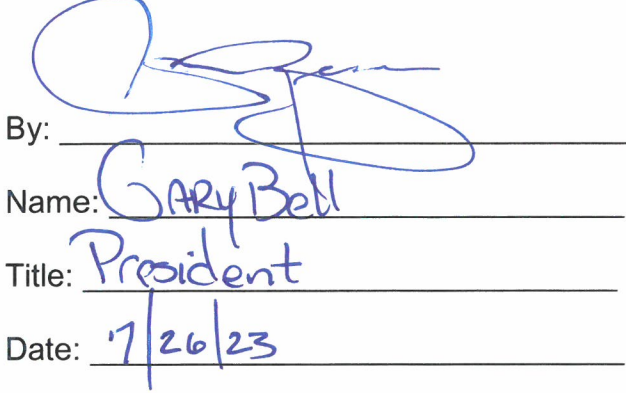 By:
Name: GARY Bell
Title: President
Date: 7/26/23